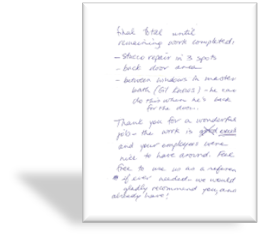 final $[?] until
remaining work completed:
- Stucco repair in 3 spots
- back door area
- between windows in master
bath (Gil knows) - he can
do this when he's back
for the door.
Thank you for a wonderful
job - the work is good
and your employees were
nice to have around. Feel
free to use us as a reference
if ever needed. we would
gladly recommend you, and
already have!